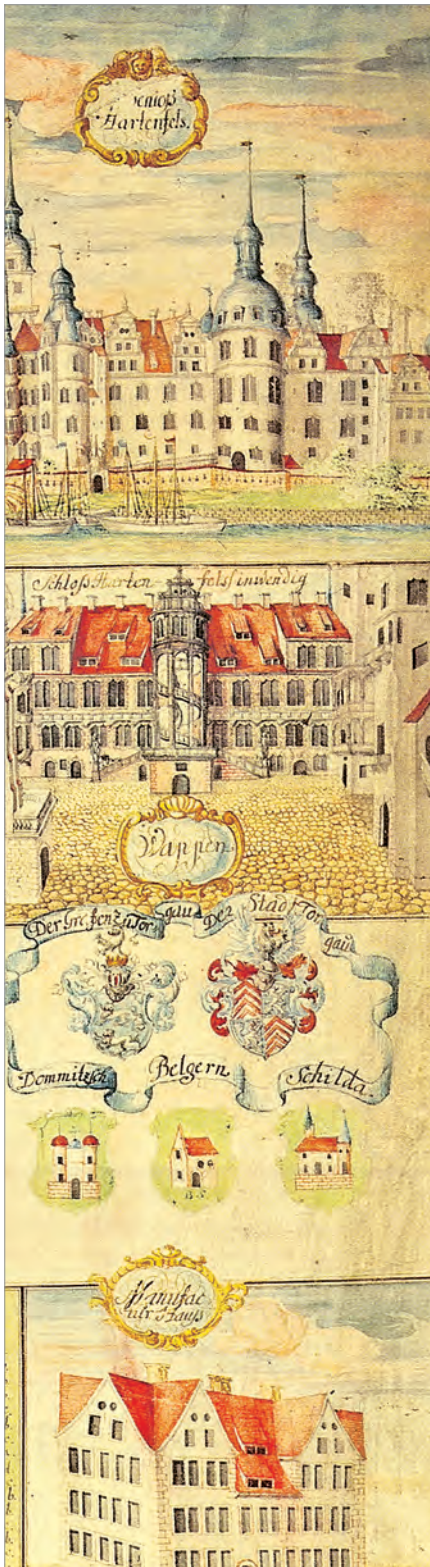 Schloß
Hartenfels.
Schloß Harten- felß inwendig
Wappen
Der Grafen zu Tor gau Der Stadt Tor gau
Dommitzsch Belgern Schilda.
B. S.
Manufac
tur Hauß